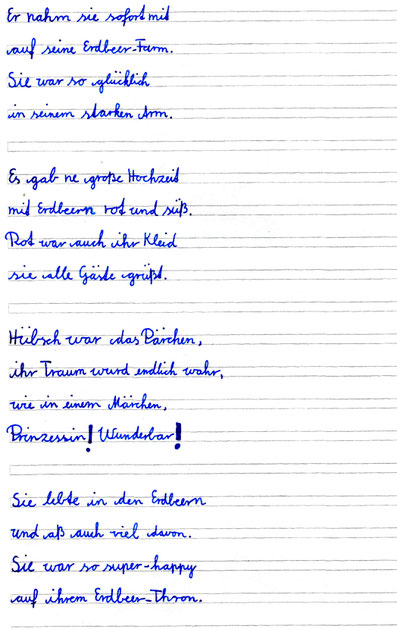 Er nahm sie sofort mit
auf seine Erdbeer-Farm.
Sie war so glücklich
in seinem starken Arm.
Es gab ne große Hochzeit
mit Erdbeern rot und süß.
Rot war auch ihr Kleid
sie alle Gäste grüßt.
Hübsch war das Pärchen,
ihr Traum wurd endlich wahr,
wie in einem Märchen,
Prinzessin! Wunderbar!
Sie lebte in den Erdbeern
und aß auch viel davon.
Sie war so super-happy
auf ihrem Erdbeer-Thron.